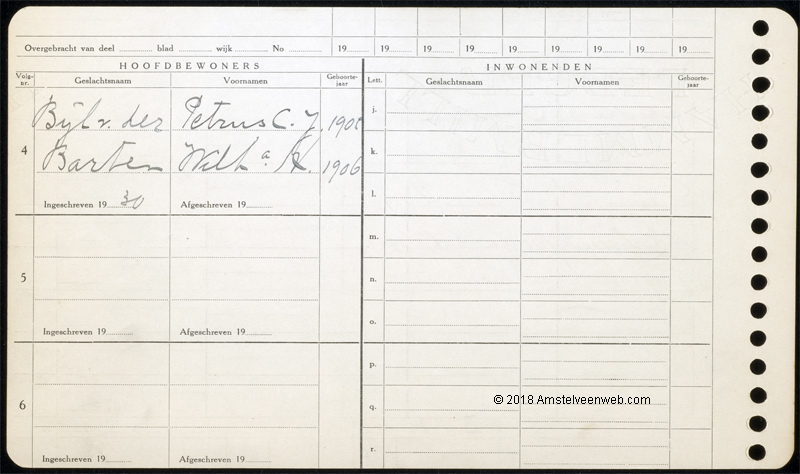 Overgebracht van deel blad wijk No 19 19 19 19 19 19 19 19 19
HOOFDBEWONERS INWONENDEN
Volg-nr. Geslachtsnaam Voornamen Geboorte-jaar Lett. Geslachtsnaam Voornamen Geboorte-jaar
4
Bijl v. der Petrus C. J. j.
Barten Wilh a H. 1906 k.
l.
Ingeschreven 19 30 Afgeschreven 19
m.
5 n.
o.
Ingeschreven 19 Afgeschreven 19
p.
6 q.
© 2018 Amstelveenweb.com
r.
Ingeschreven 19 Afgeschreven 19